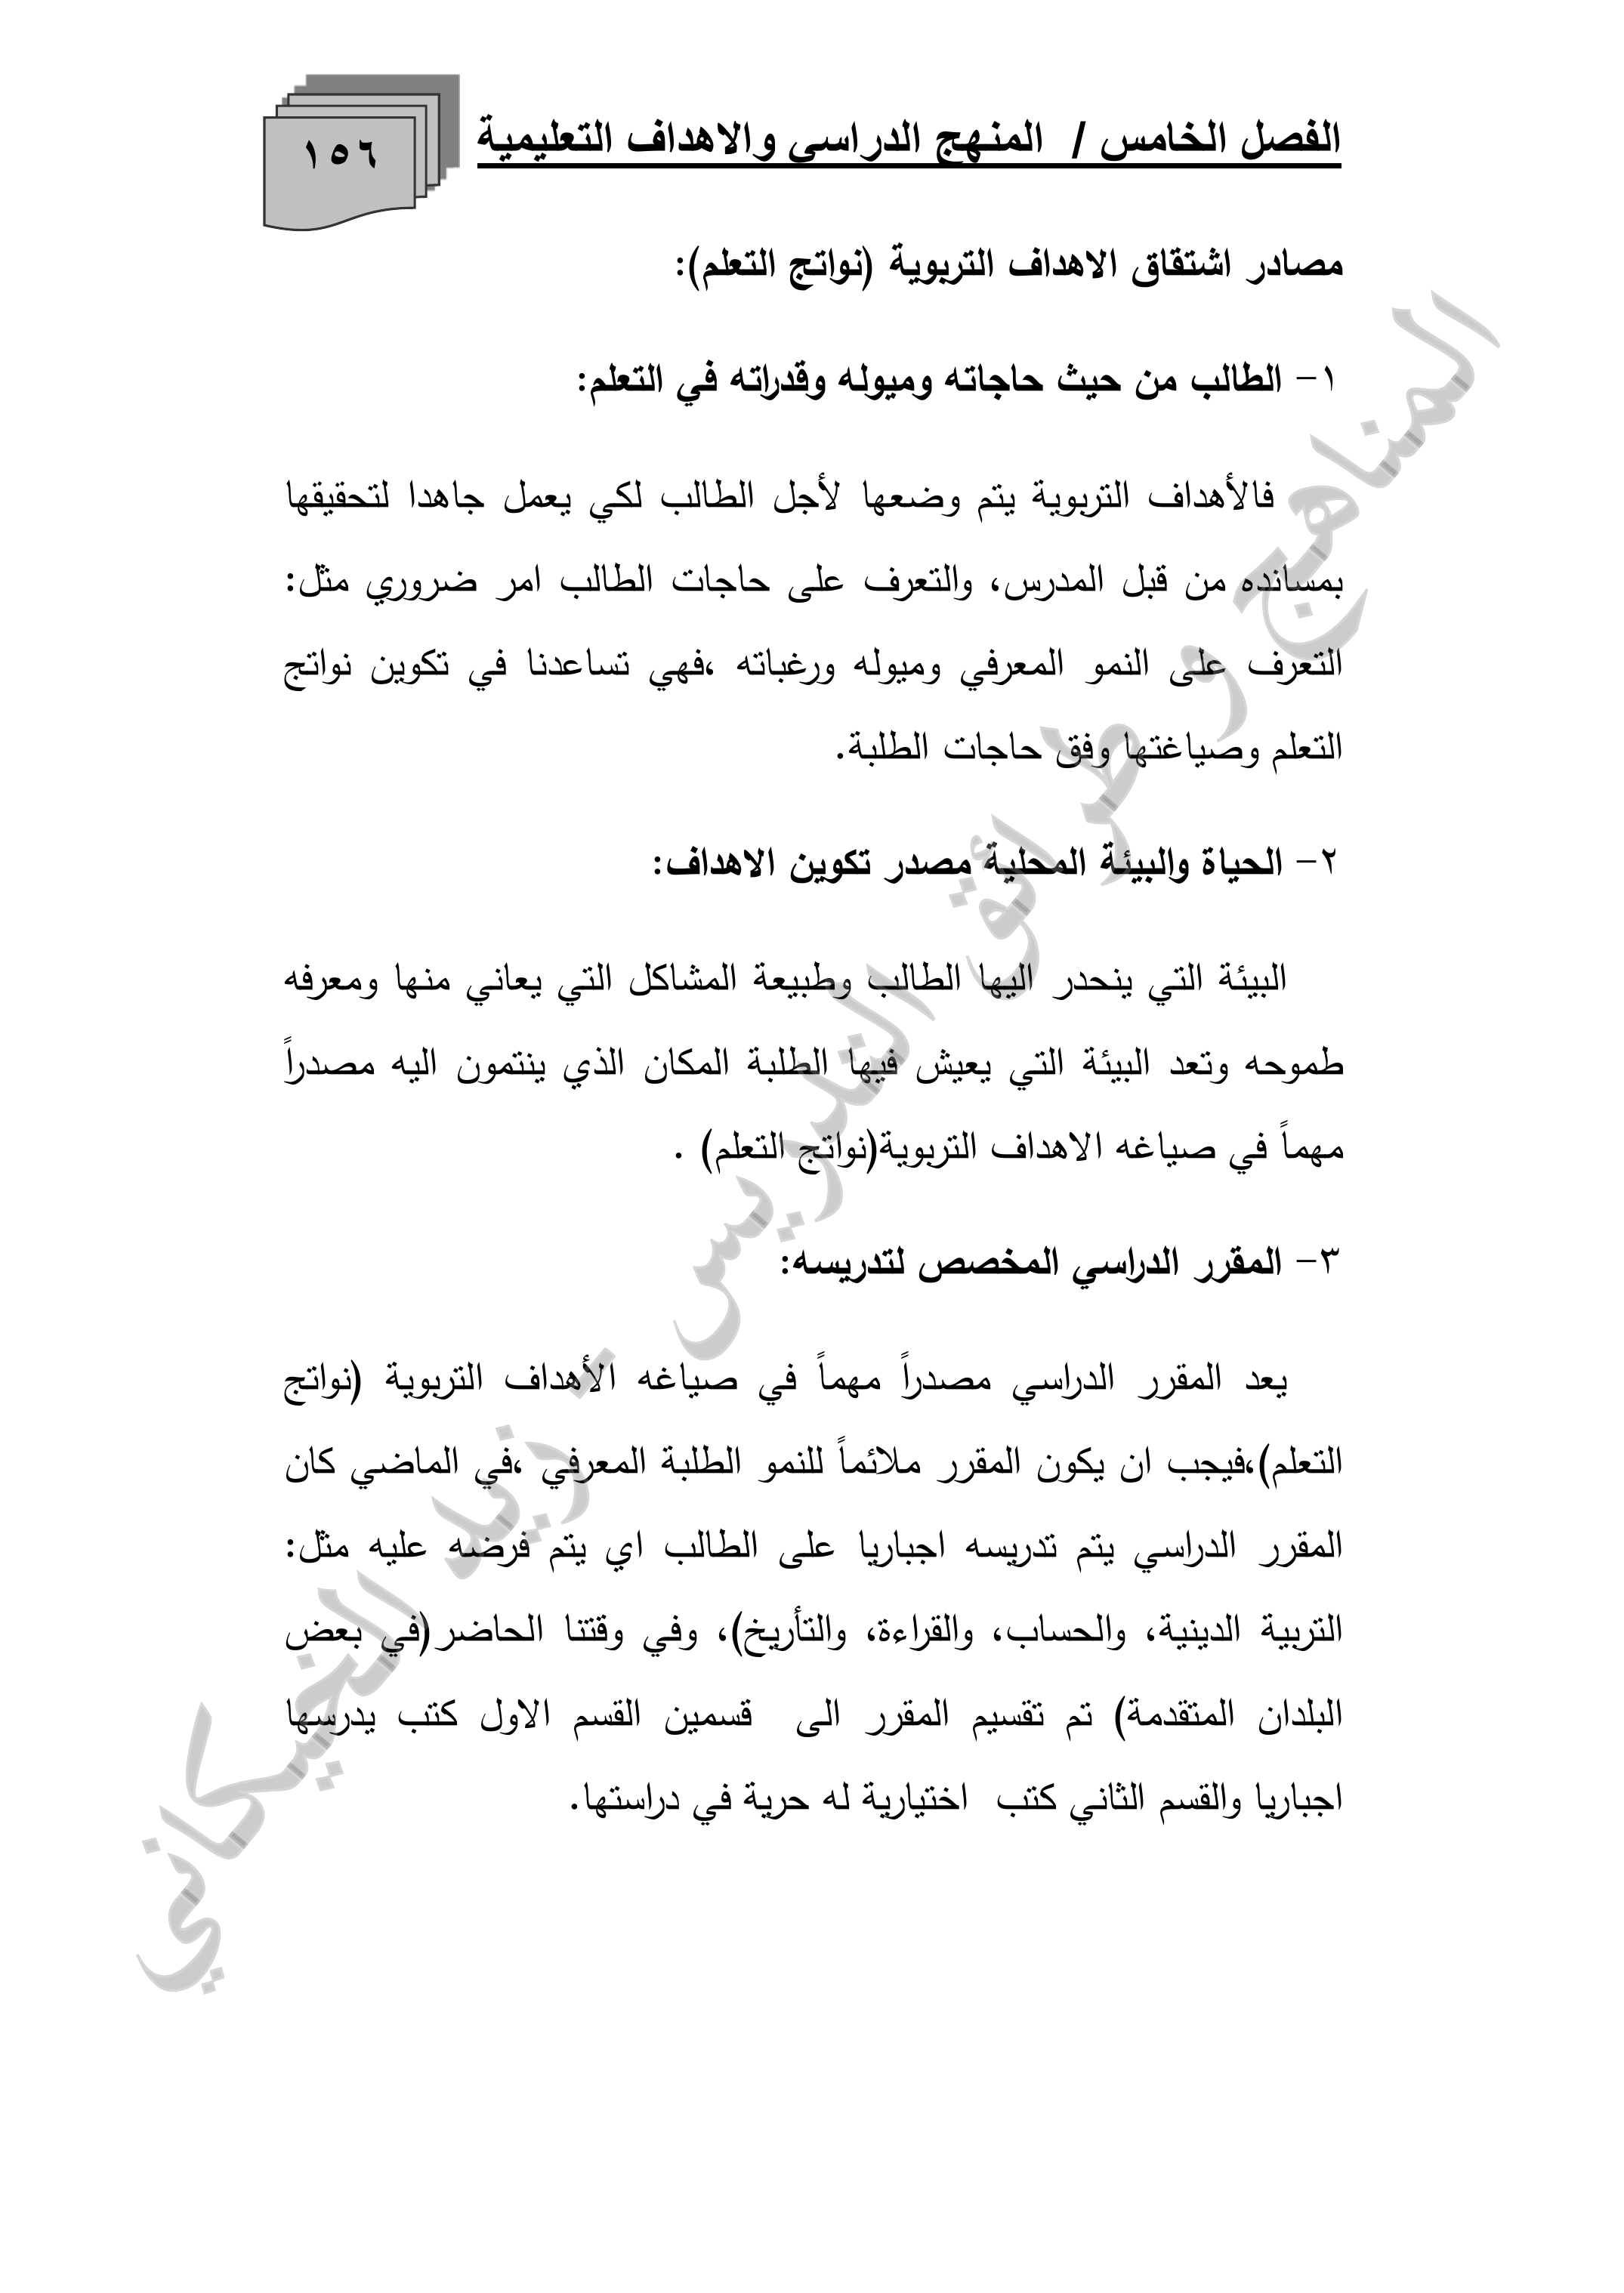 الفصل الخامس / المنهج الدراسي والاهداف التعليمية
١٥٦
مصادر اشتقاق الاهداف التربوية (نواتج التعلم):
١- الطالب من حيث حاجاته وميوله وقدراته في التعلم:
فالأهداف التربوية يتم وضعها لأجل الطالب لكي يعمل جاهدا لتحقيقها
بمسانده من قبل المدرس، والتعرف على حاجات الطالب امر ضروري مثل:
التعرف على النمو المعرفي وميوله ورغباته ،فهي تساعدنا في تكوين نواتج
التعلم وصياغتها وفق حاجات الطلبة.
٢- الحياة والبيئة المحلية مصدر تكوين الاهداف:
البيئة التي ينحدر اليها الطالب وطبيعة المشاكل التي يعاني منها ومعرفه
طموحه وتعد البيئة التي يعيش فيها الطلبة المكان الذي ينتمون اليه مصدراً
مهماً في صياغه الاهداف التربوية(نواتج التعلم) .
٣- المقرر الدراسي المخصص لتدريسه:
يعد المقرر الدراسي مصدراً مهماً في صياغه الأهداف التربوية (نواتج
التعلم)،فيجب ان يكون المقرر ملائماً للنمو الطلبة المعرفي ،في الماضي كان
المقرر الدراسي يتم تدريسه اجباريا على الطالب اي يتم فرضه عليه مثل:
التربية الدينية، والحساب، والقراءة، والتأريخ)، وفي وقتنا الحاضر(في بعض
البلدان المتقدمة) تم تقسيم المقرر الى قسمين القسم الاول كتب يدرسها
اجباريا والقسم الثاني كتب اختيارية له حرية في دراستها.
المناهج و طرائق التدريس - زيد الخيكاني